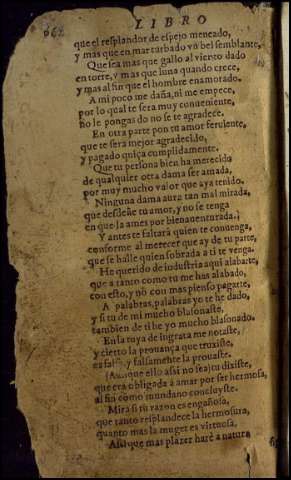 LIBRO
que el resplandor de espejo meneado,
y mas que en mar turbado vn bel semblante,
Que sea mas que gallo al viento dado
en torre, y mas que luna quando crece,
y mas al fin que el hombre enamorado.
A mi poco me daña, ni me empece,
por lo qual te sera muy conueniente,
no le pongas do no se te agradece.
En otra parte pon tu amor feruiente,
que te sera mejor agradecido,
y pagado quiça cumplidamente.
Que tu persona bien ha merecido
de qualquier otra dama ser amada,
por muy mucho valor que aya tenido.
Ninguna dama aura tan mal mirada,
que desdeñe tu amor, y no se tenga
en que la ames por bienauenturada.
Y antes te faltará quien te conuenga,
conforme al merecer que ay de tu parte,
que se halle quien sobrada a ti te venga.
He querido de industria aqui alabarte,
que a tanto como tu me has alabado,
con esto, y nò con mas pienso pagarte.
A palabras, palabras yo te he dado,
y si tu de mi mucho blasonaste,
tambien de ti he yo mucho blasonado.
En la tuya de ingrata me notaste,
y cierto la prouança que truxiste,
es falsa, y falsamente la prouaste.
Aunque ello assi no sea, tu dixiste,
que era obligada à amar por ser hermosa,
al fin como inundano concluyste.
Mira si tu razon es engañosa,
que tanto resplandece la hermosura,
quanto mas la muger es virtuosa.
Assi que mas plazer harè a natura